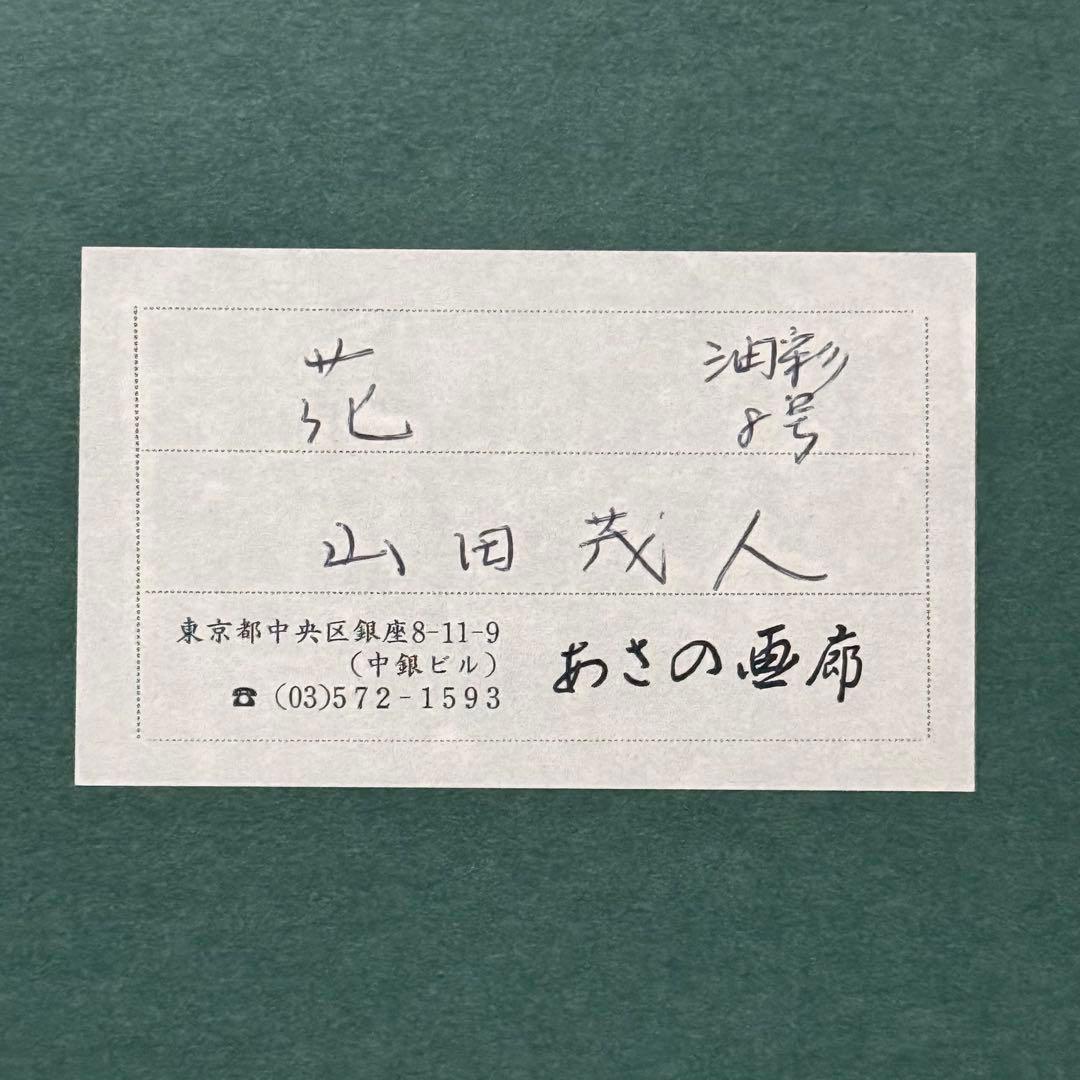 花 油彩
8号
山田茂人
東京都中央区銀座8-11-9
(中銀ビル)
☎ (03)572-1593
あさの画廊